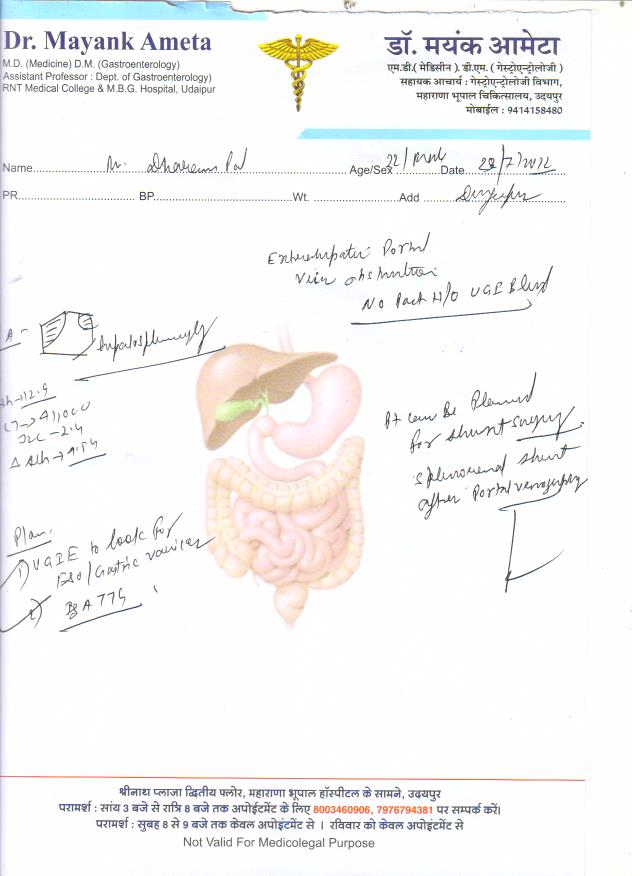 Dr. Mayank Ameta
M.D. (Medicine) D.M. (Gastroenterology)
Assistant Professor : Dept. of Gastroenterology)
RNT Medical College & M.B.G. Hospital, Udaipur
डॉ. मयंक आमेटा
एम.डी.( मेडिसीन ). डी.एम. ( गेस्ट्रोएन्ट्रोलोजी )
सहायक आचार्य : गेस्ट्रोएन्ट्रोलोजी विभाग,
महाराणा भूपाल चिकित्सालय, उदयपुर
मोबाईल : 9414158480
Name Age/Sex 22/ Date
PR BP Wt. Add
Extrahepatic Portal
Vein obstruction
No Past H/O UGI Bleed
hepatosplenomegaly
12.9
41,000
Pt can Be Planned
for shunt surgery
splenorenal shunt
after Portal venography
Plan.
1) UGIE to look for
Eso/Gastric varices
2)
श्रीनाथ प्लाजा द्वितीय फ्लोर, महाराणा भूपाल हॉस्पीटल के सामने, उदयपुर
परामर्श : सांय 3 बजे से रात्रि 8 बजे तक अपोईटमेंट के लिए 8003460906, 7976794381 पर सम्पर्क करें।
परामर्श : सुबह 8 से 9 बजे तक केवल अपोइंटमेंट से । रविवार को केवल अपोइंटमेंट से
Not Valid For Medicolegal Purpose